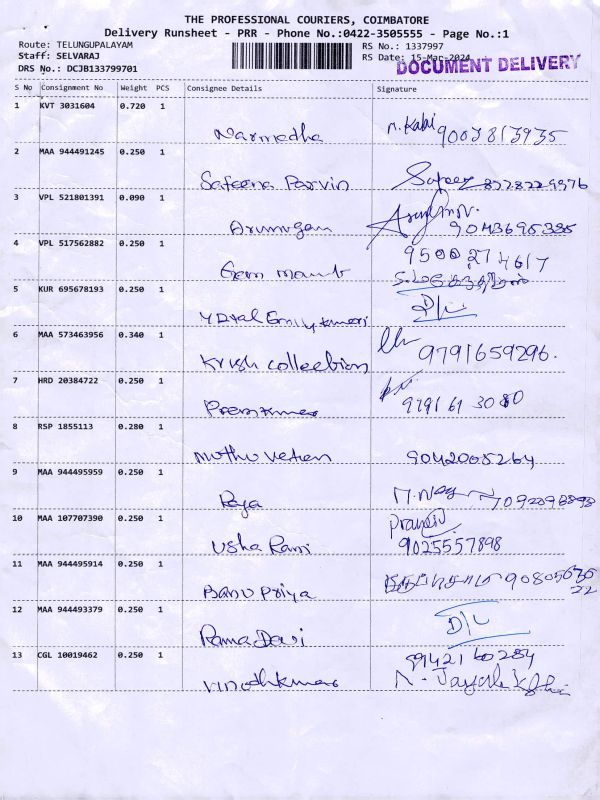 THE PROFESSIONAL COURIERS, COIMBATORE
Delivery Runsheet - PRR - Phone No.:0422-3505555 - Page No.:1
Route: TELUNGUPALAYAM
RS No.: 1337997
Staff: SELVARAJ
RS Date: 15-Mar-2024
DRS No.: DCJB133799701
DOCUMENT DELIVERY
S No Consignment No Weight PCS Consignee Details Signature
1 KVT 3031604 0.720 1
Narmedha n. Kabi 9003813935
2 MAA 944491245 0.250 1
Safeena Parvin Safeer 8778229376
3 VPL 521801391 0.090 1
Arumugam 9043695335
4 VPL 517562882 0.250 1
9500274617
Gem
5 KUR 695678193 0.250 1
D/L
6 MAA 573463956 0.340 1
Krish collection 9791659296.
7 HRD 20384722 0.250 1
Premkumar 9791613080
8 RSP 1855113 0.280 1
Muthu 9042005264
9 MAA 944495559 0.250 1
Raja 7092898898
10 MAA 107707390 0.250 1
Usha Rani 9025557898
11 MAA 944495914 0.250 1
Banu Priya
12 MAA 944493379 0.250 1
Rama Devi D/L
13 CGL 10019462 0.250 1
9942160284
Vinothkumar